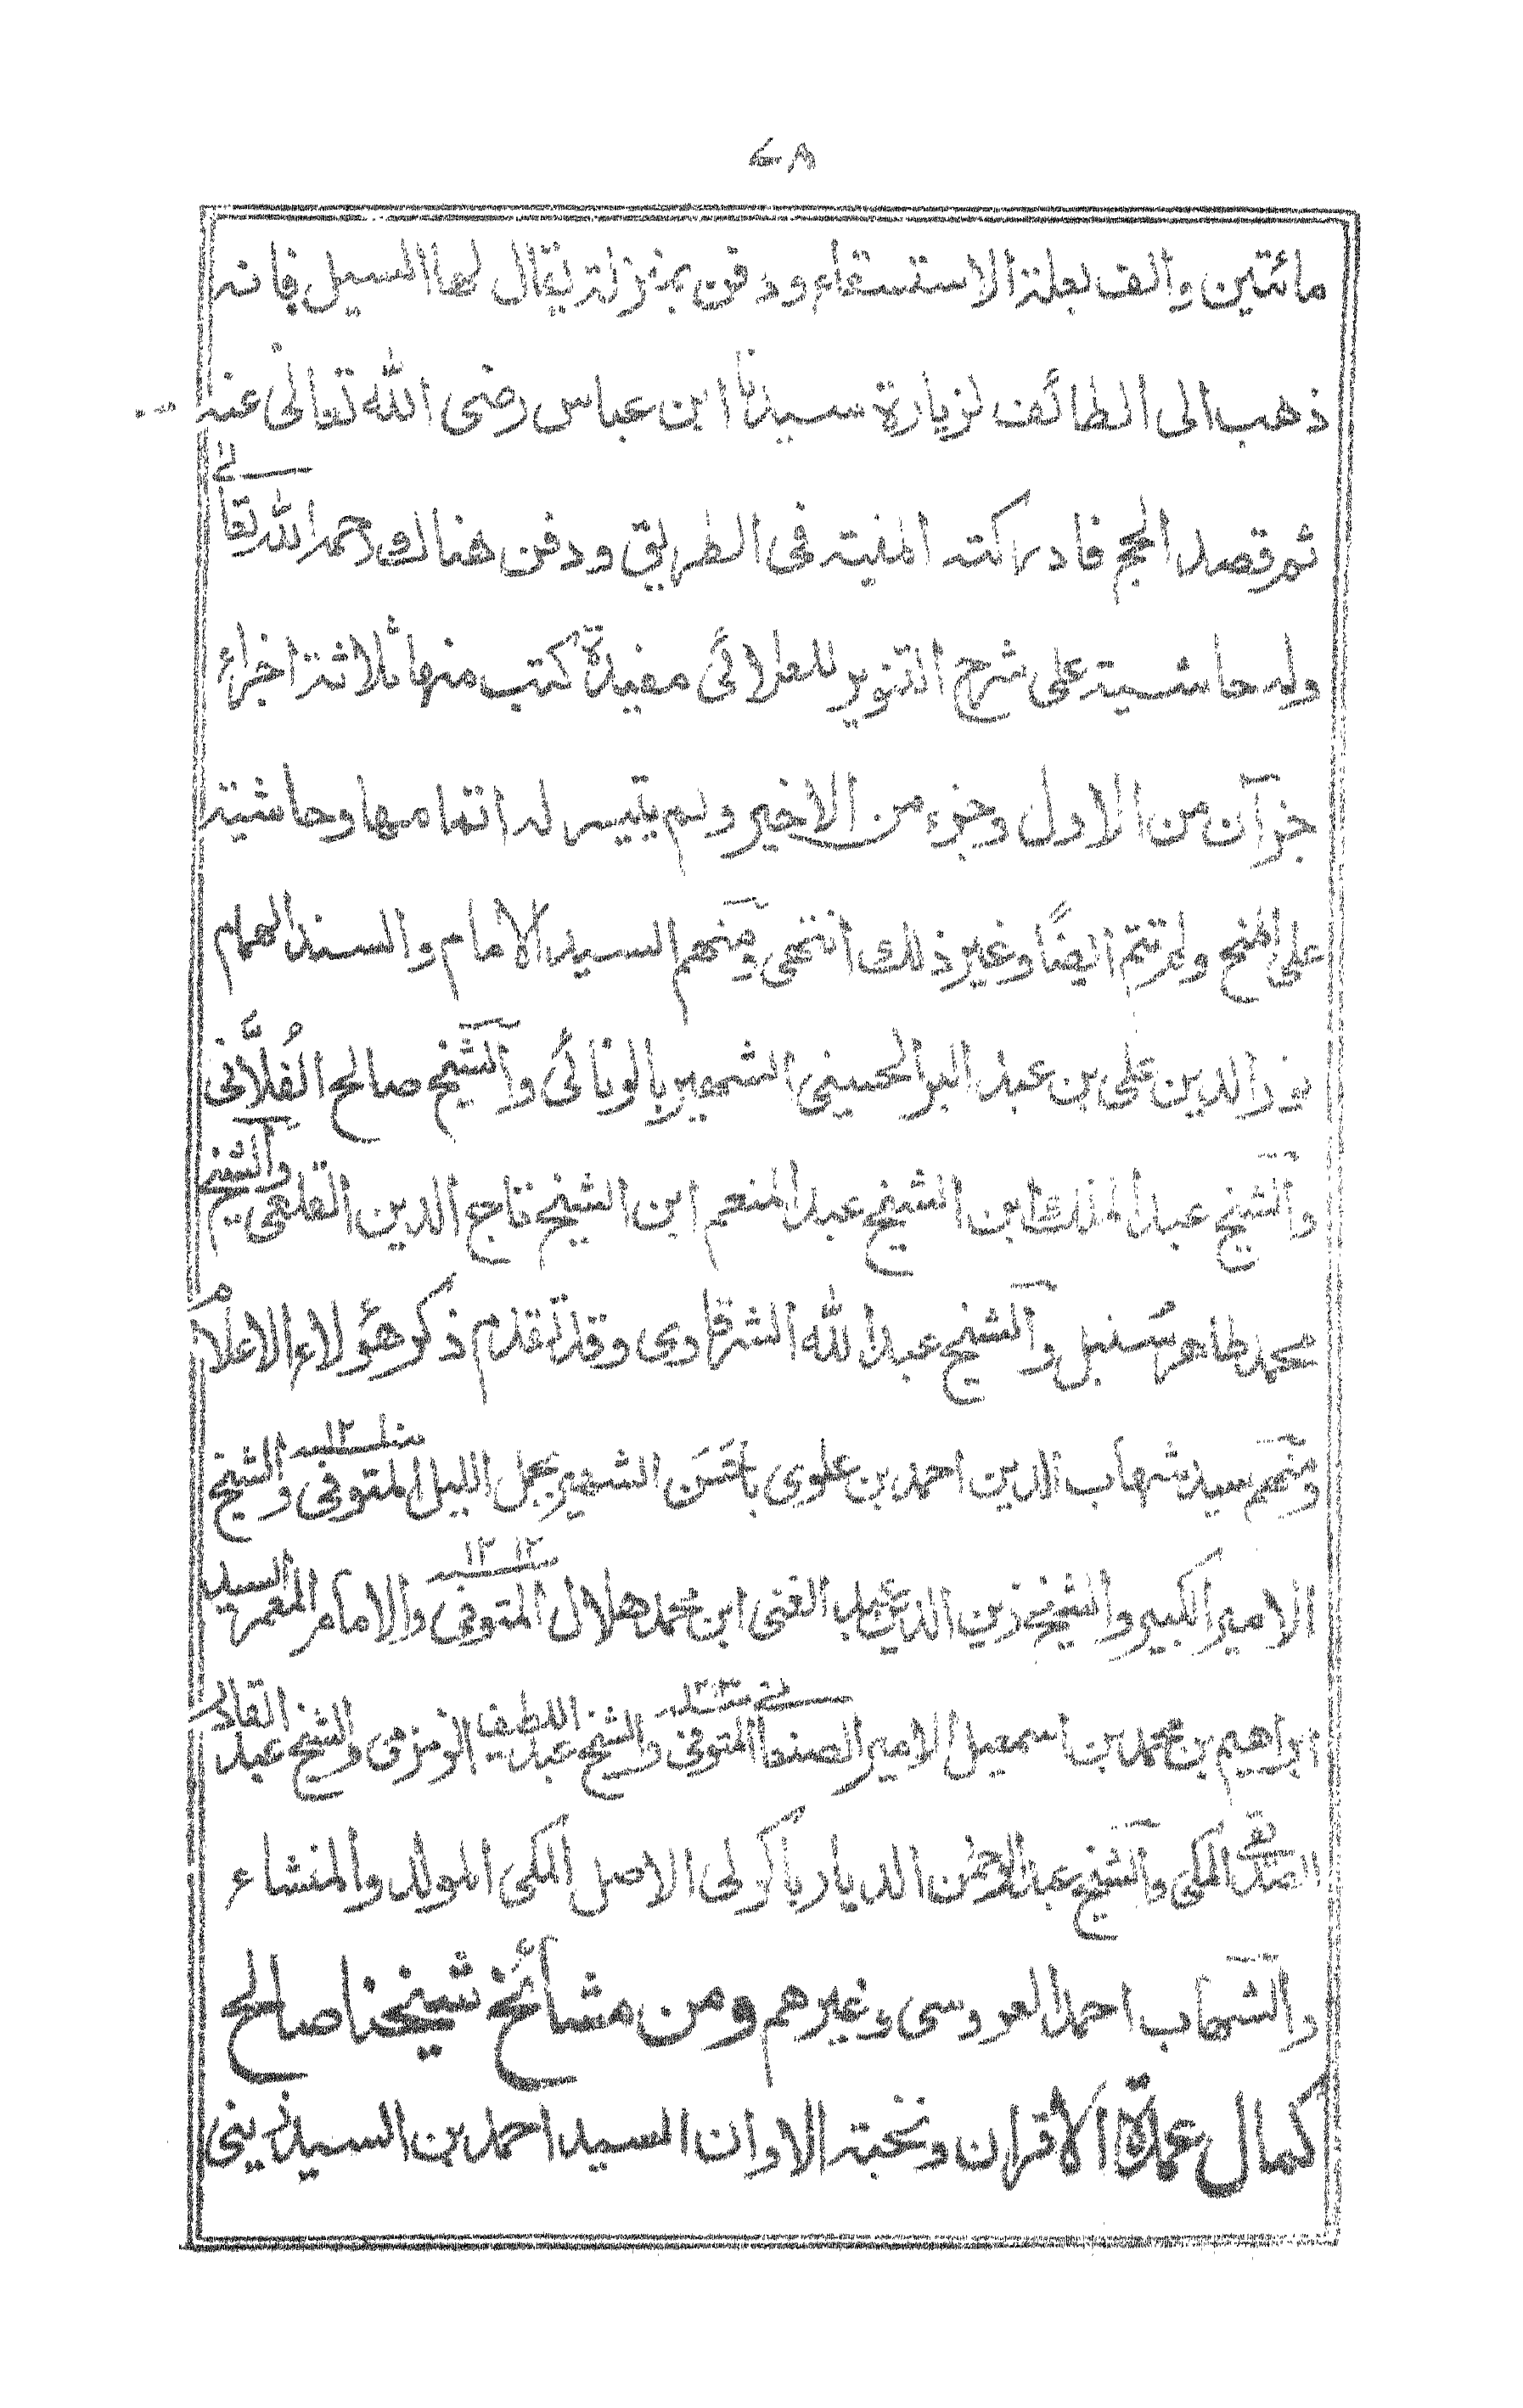 ٤٨
مائتين والف بعلة الاستسقاء ودفن بمنزلة يقال لها السيل فانه
ذهب الى الطائف لزيارة سيدنا ابن عباس رضى الله تعالى عنه
ثم قصد الحج فادركته المنية فى الطريق ودفن هناك رحمه الله تعالے
وله حاشية على شرح التنوير للعلائى مفيدة كتب منها ثلاثة اجزاء
جزآن من الاول وجزء من الاخير ولم يتيسر له اتمامها وحاشية
على المنح ولم تتم ايضًا وغير ذلك انتهى ومنهم السيد الامام والسند الهمام
نور الدين على بن عبد البر الحسينى الشهير بالونائى والشيخ صالح الفُلَّانى
والشيخ عبد الملك ابن الشيخ عبد المنعم ابن الشيخ تاج الدين القلعى والشيخ
محمد طاهر سُنبل والشيخ عبد الله الشرقاوى وقد تقدم ذكر هؤلاء الاعلام
ومنهم سيد شهاب الدين احمد بن علوى باحَسَن الشهير بجمل الليل المتوفى والشيخ
الامير الكبير والشيخ زين الدين عبد الغنى ابن محمد هلال المتوفى ١٢١٢ والامام المعمر السيد
ابراهيم بن محمد بن اسمعيل الامير الصنعانے المتوفى والشيخ عبد اللطيف الزمزمى والشيخ عبد القادر
المكى والشيخ عبد الرحمٰن الديار باكرلى الاصل المكى المولد والمنشاء
والشهاب احمد العروسى وغيرهم ومن مشائخ شيخنا صالح
كمال عمدة الاقران ونخبة الاوان السيد احمد بن السيد زينى